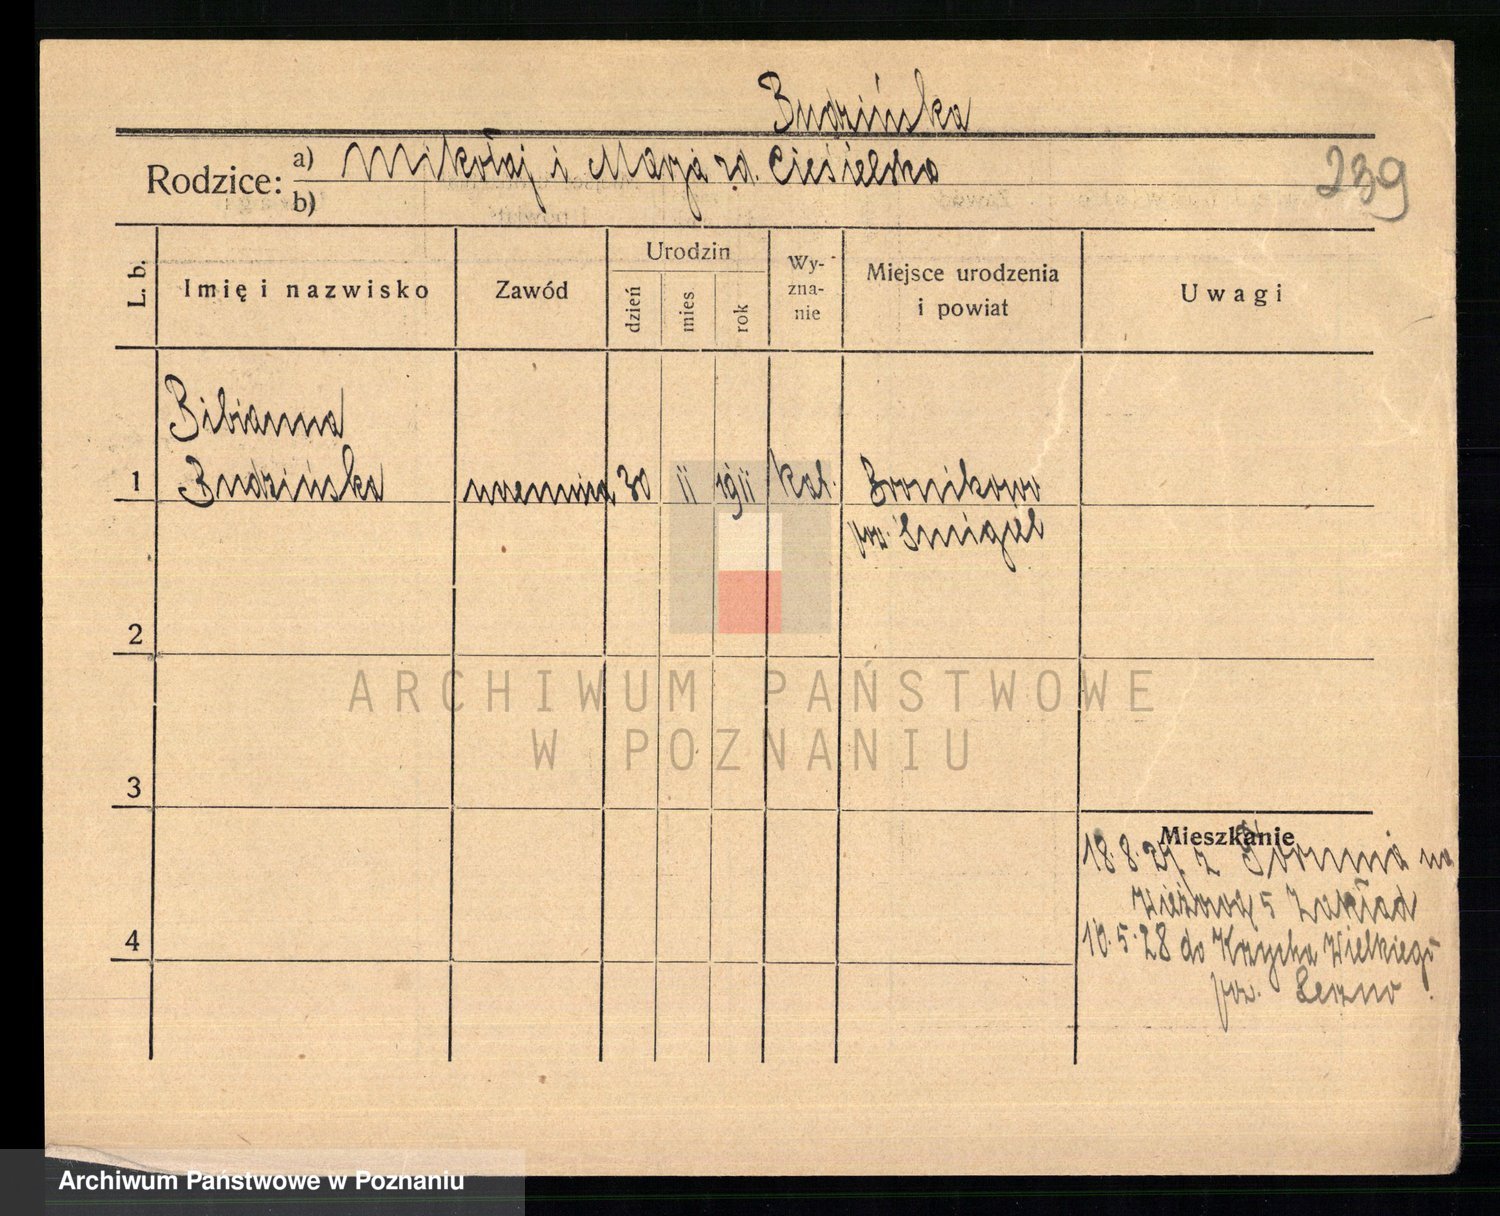 Budzińska
Rodzice:
a) Mikołaj i Marja zd. Cieśielska
b)
239
L. b.
Imię i nazwisko
Zawód
Urodzin
dzień
mies
rok
Wy-
zna-
nie
Miejsce urodzenia
i powiat
Uwagi
Bibianna
1 Budzińska uczennica 30 II 1911 kat. Bronikowo
pow. Śmigiel
2
3
4
Mieszkanie
18.8.27 z Torunia na
Wieżową 5 Zakład
10.5.28 do Krzycka Wielkiego
pow. Leszno
ARCHIWUM PAŃSTWOWE
W POZNANIU
Archiwum Państwowe w Poznaniu